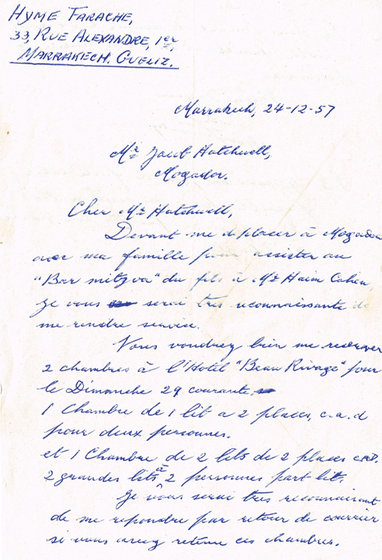 HYME FARACHE,
33, RUE ALEXANDRE, 1er,
MARRAKECH. GUELIZ.
Marrakech, 24-12-57
Mr Jacob Hatchwell,
Mogador.
Cher Mr Hatchwell,
Devant me déplacer à Mogador
avec ma famille pour assister au
"Bar mitzva" du fils à Mr Haim Cohen
je vous serai très reconnaissante de
me rendre service.
Vous voudrez bien me reserver
2 chambres à l'Hotel "Beau Rivage" pour
le Dimanche 29 courante,
1 Chambre de 1 lit a 2 places, c.a.d
pour deux personnes.
et 1 Chambre de 2 lits de 2 places c.a.d.
2 grandes lits à 2 personnes part lit.
Je vous serai très reconnaissant
de me repondre par retour de courrier
si vous avez retenu ces chambres.